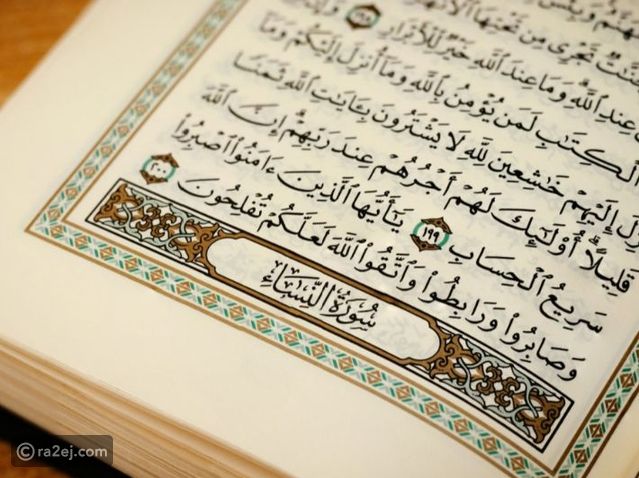 تَجْرِي مِن تَحْتِهَا ٱلْأَنْهَٰرُ
عِندِ ٱللَّهِ وَمَا عِندَ ٱللَّهِ خَيْرٌ لِّلْأَبْرَارِ ١٩٨
ٱلْكِتَٰبِ لَمَن يُؤْمِنُ بِٱللَّهِ وَمَآ أُنزِلَ إِلَيْكُمْ وَمَآ
إِلَيْهِمْ خَٰشِعِينَ لِلَّهِ لَا يَشْتَرُونَ بِـَٔايَٰتِ ٱللَّهِ ثَمَنًا
قَلِيلًا أُو۟لَٰٓئِكَ لَهُمْ أَجْرُهُمْ عِندَ رَبِّهِمْ إِنَّ ٱللَّهَ
سَرِيعُ ٱلْحِسَابِ ١٩٩ يَٰٓأَيُّهَا ٱلَّذِينَ ءَامَنُوا۟ ٱصْبِرُوا۟
وَصَابِرُوا۟ وَرَابِطُوا۟ وَٱتَّقُوا۟ ٱللَّهَ لَعَلَّكُمْ تُفْلِحُونَ ٢٠٠
سُورَةُ النِّسَاءِ
© ra2ej.com